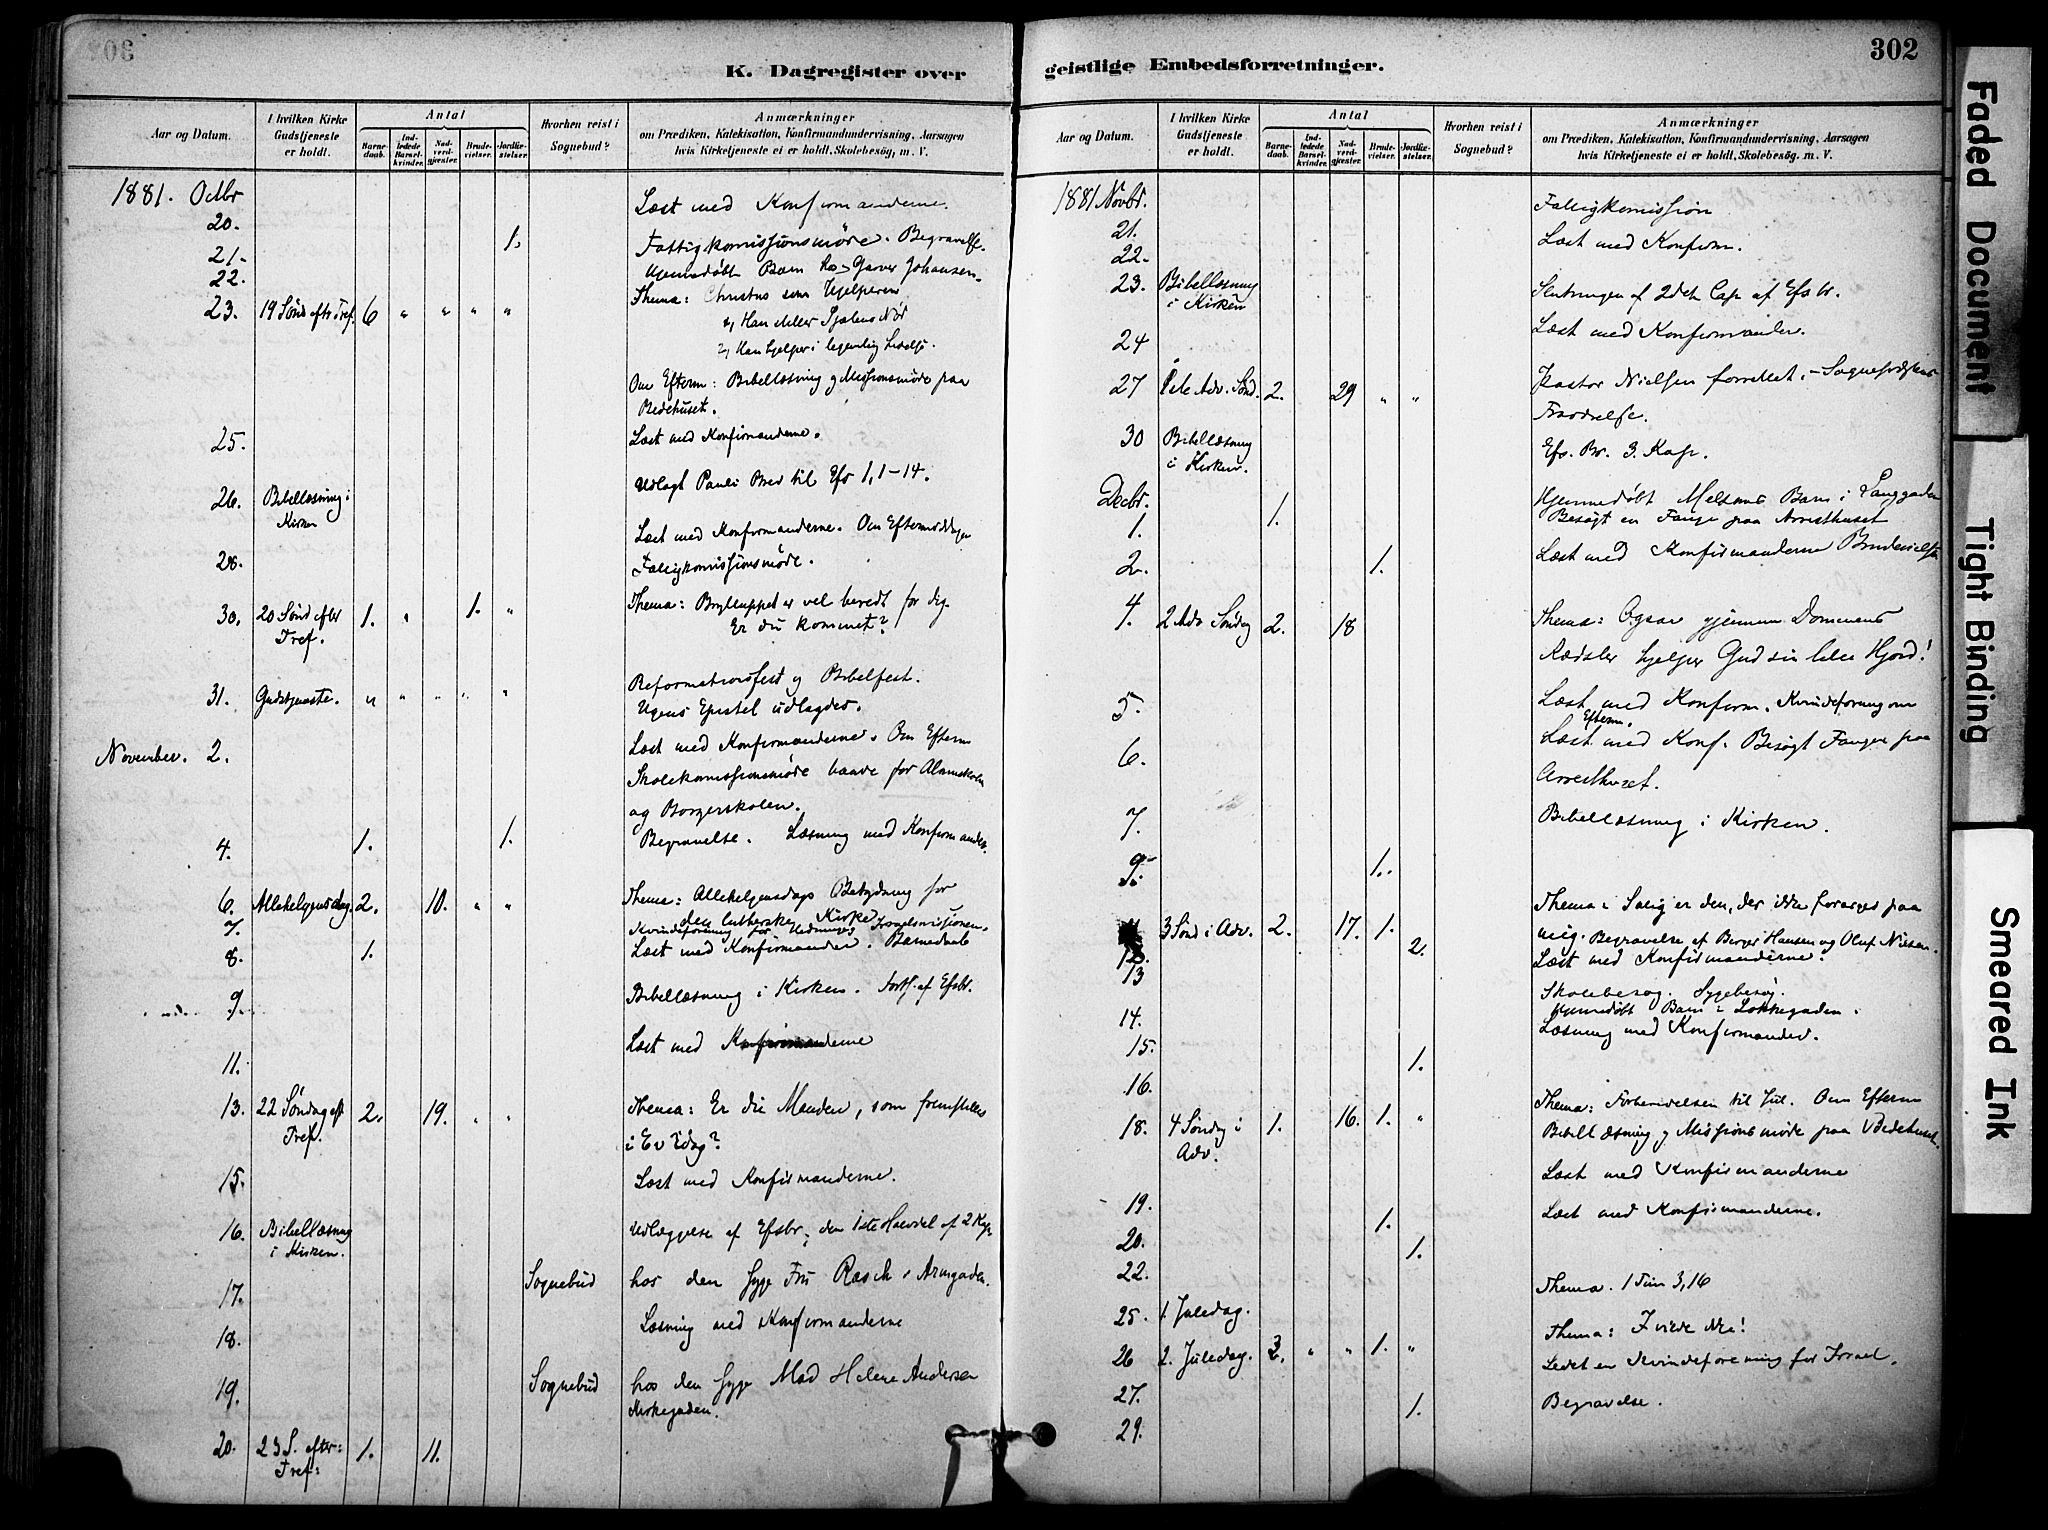 302
K. Dagregister over
geistlige Embedsforretninger.
Aar og Datum.
I hvilken Kirke Gudstjeneste er holdt.
Antal
Barnedaab.
Indledede Barselkvinder.
Nadverdgjester.
Brudevielser.
Jordfæstelser.
Hvorhen reist i Sognebud?
Anmærkninger
om Prædiken, Katekisation, Konfirmandundervisning, Aarsagen
hvis Kirketjeneste ei er holdt, Skolebesøg, m. V.
1881. Octbr
20. Læst med Konfirmanderne.
21. 1. Fattigkomissionsmöde. Begravelse.
22. Hjemmedöbt Barn hos Garver Johansen.
23. 19 Sönd eftr Tref. 6 " " " " Thema: Christus som Hjelperen
1, Han Sjælens Nöd
2, Han hjelper i legemlig Lidelse.
Om Efterm: Bibellæsning og Missionsmöde paa
Bedehuset.
25. Læst med Konfirmanderne.
26. Bibellæsning i Kirken Udlagt Pauli Brev til Efs 1, 1-14.
28. Læst med Konfirmanderne. Om Eftermiddagen
Fattigkomissionsmöde.
30. 20 Sönd efter Tref. 1. " 1. " Thema: Brylluppet er vel beredt for dig.
Er du kommet?
31. Gudstjeneste. " " " " " Reformationsfest og Bibelfest.
Ugens Epistel udlagdes.
November. 2. Læst med Konfirmanderne. Om Efterm
Skolekomissionsmöde baade for Almueskolen
og Borgerskolen.
4. 1. 1. Begravelse. Læsning med Konfirmander.
6. Allehelgensdag. 2. 10. " " Thema: Allehelgensdags Betydning for
den lutherske Kirke
7. Kvindeforening for Hednings Israelsmissionen.
8. 1. Læst med Konfirmander. Barnedaab
9. Bibellæsning i Kirken. Forts. af Efsbr.
11. Læst med Konfirmanderne
13. 22 Söndag eft Tref. 2. 19. " " Thema: Er du Manden, som fremstilles
i Ev idag?
15. Læst med Konfirmanderne.
16. Bibellæsning i Kirken. Udlæggelse af Efsbr, den 1ste Halvdel af 2 Kap.
17. Sognebud hos den syge Fru Rasch i Armgaden.
18. Læsning med Konfirmanderne
19. Sognebud hos den syge Mad Helene Andersen
Kirkegaden.
20. 23 S. efter Tref: 1. 11.
Aar og Datum.
I hvilken Kirke Gudstjeneste er holdt.
Antal
Barnedaab.
Indledede Barselkvinder.
Nadverdgjester.
Brudevielser.
Jordfæstelser.
Hvorhen reist i Sognebud?
Anmærkninger
om Prædiken, Katekisation, Konfirmandundervisning, Aarsagen
hvis Kirketjeneste ei er holdt, Skolebesøg. m. V.
1881 Novbr.
21. Fattigkomission
22. Læst med Konfirm.
23. Bibellæsning i Kirken Slutningen af 2det Cap af Efs br.
24 Læst med Konfirmander.
27 1ste Adv. Sönd. 2. 29 " " Pastor Nielsen forrettet. - Sognepræstens
Fraværelse.
30 Bibellæsning i Kirken. Efs. Br. 3. Kap.
Decbr.
1. 1. Hjemmedöbt Barn i Langgaden
Besögt en Fange paa Arresthuset
2. 1. Læst med Konfirmanderne Brudevielse
4. 2 Adv Söndag 2. 18 Thema: Ogsaa gjennem Dommens
Rædsler hjelper Gud sin lille Hjord!
5. Læst med Konfirm. Kvindeforening om
Efterm.
6. Læst med Konf. Besögt Fanger paa
Arresthuset.
7. Bibellæsning i Kirken.
9. 1.
3 Sönd i Adv. 2. 17. 1. Thema: Salig er den, der ikke forarges paa
mig.
12. 2. Begravelse af Berger Hansen og Oluf Nilsen.
13 Læst med Konfirmanderne.
14. Skolebesög. Sygebesög.
Hjemmedöbt Barn i Lökkegaden.
15. Læsning med Konfirmander.
16. 1.
18. 4 Söndag i Adv. 1. 16. 1. " Thema: Forberedelsen til Jul. Om Efterm
Bibellæsning og Missionsmöde paa Bedehuset.
19. Læst med Konfirmanderne
20. 1. Læst med Konfirmanderne.
22. 1.
25. 1. Juledag. Thema. 1 Tim 3,16
26 2. Juledag. 3. " " 1. " Thema:
27. Ledet en Kvindeforening for Israel.
29. 1. Begravelse.
Faded Document
Tight Binding
Smeared Ink